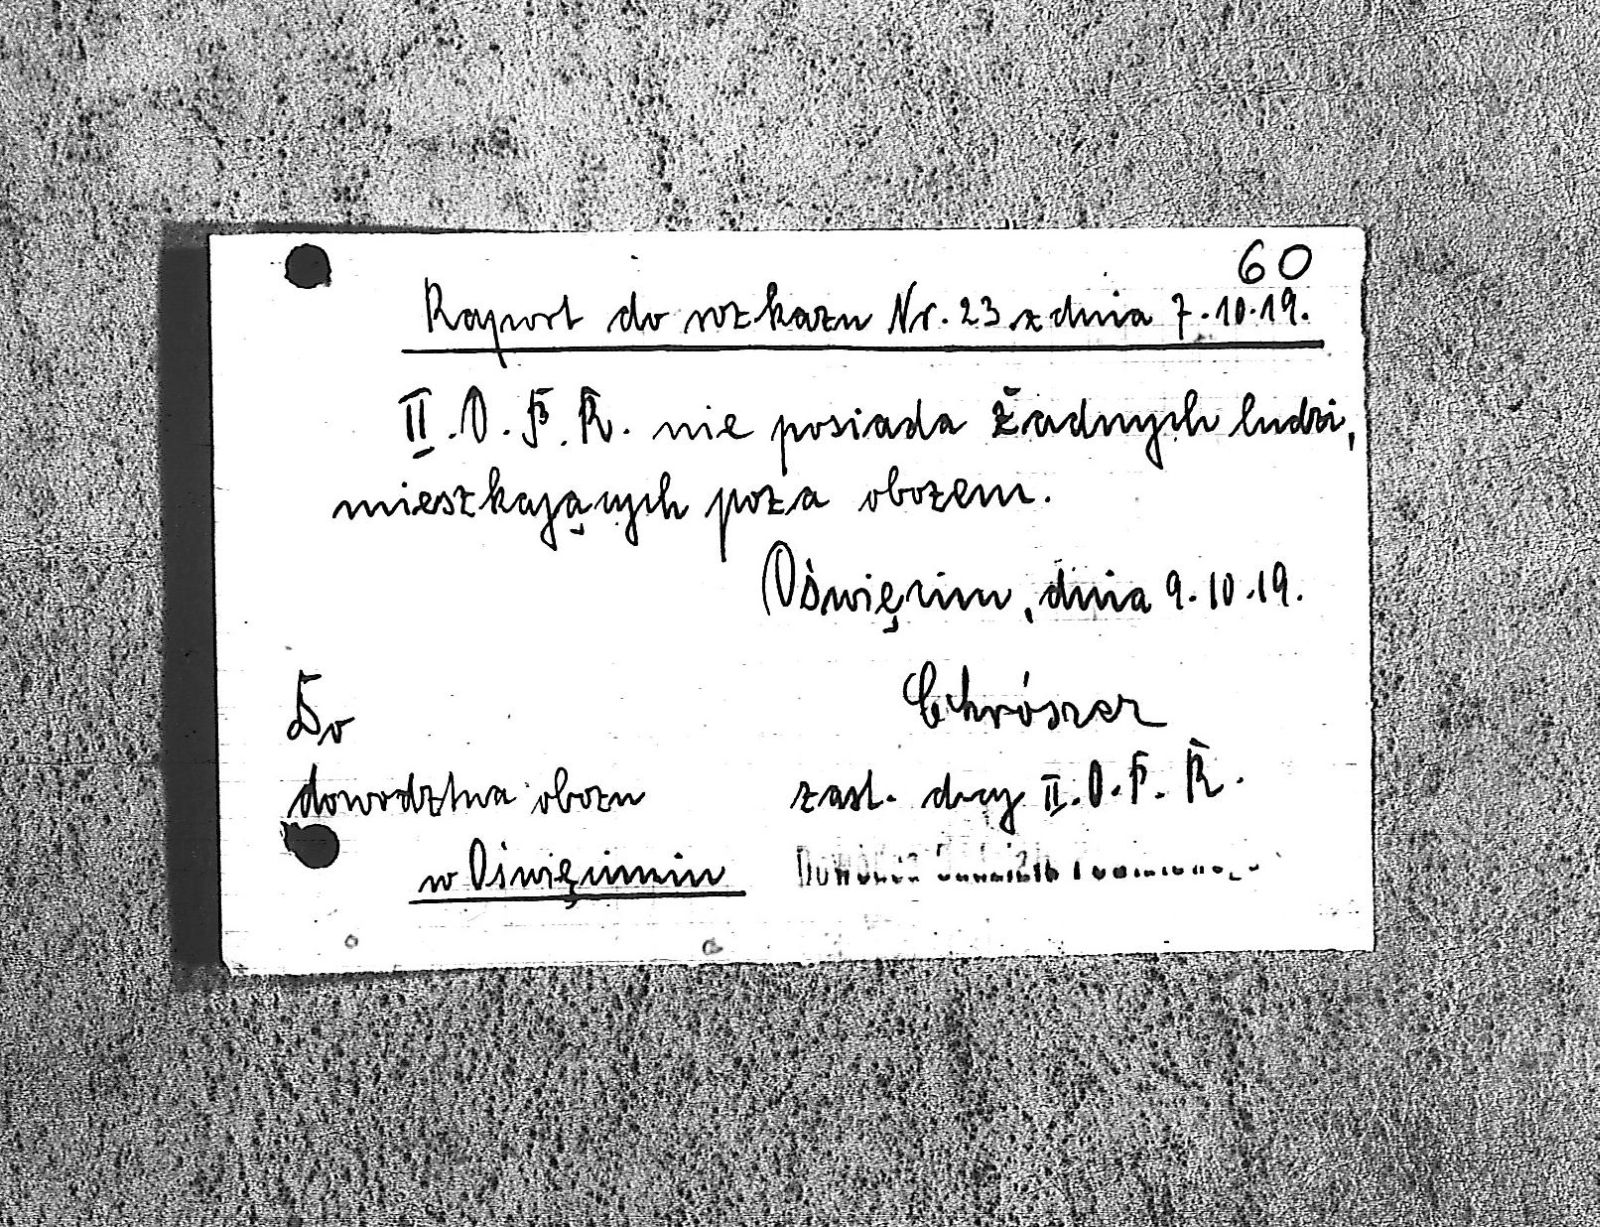 60
Raport do rozkazu Nr. 23 z dnia 7.10.19.
II. O. F. R. nie posiada żadnych ludzi,
mieszkających poza obozem.
Oświęcim, dnia 9.10.19.
Do
dowodztwa obozu
w Oświęcimiu
Chrószcz
zast. dcy II. O. F. R.